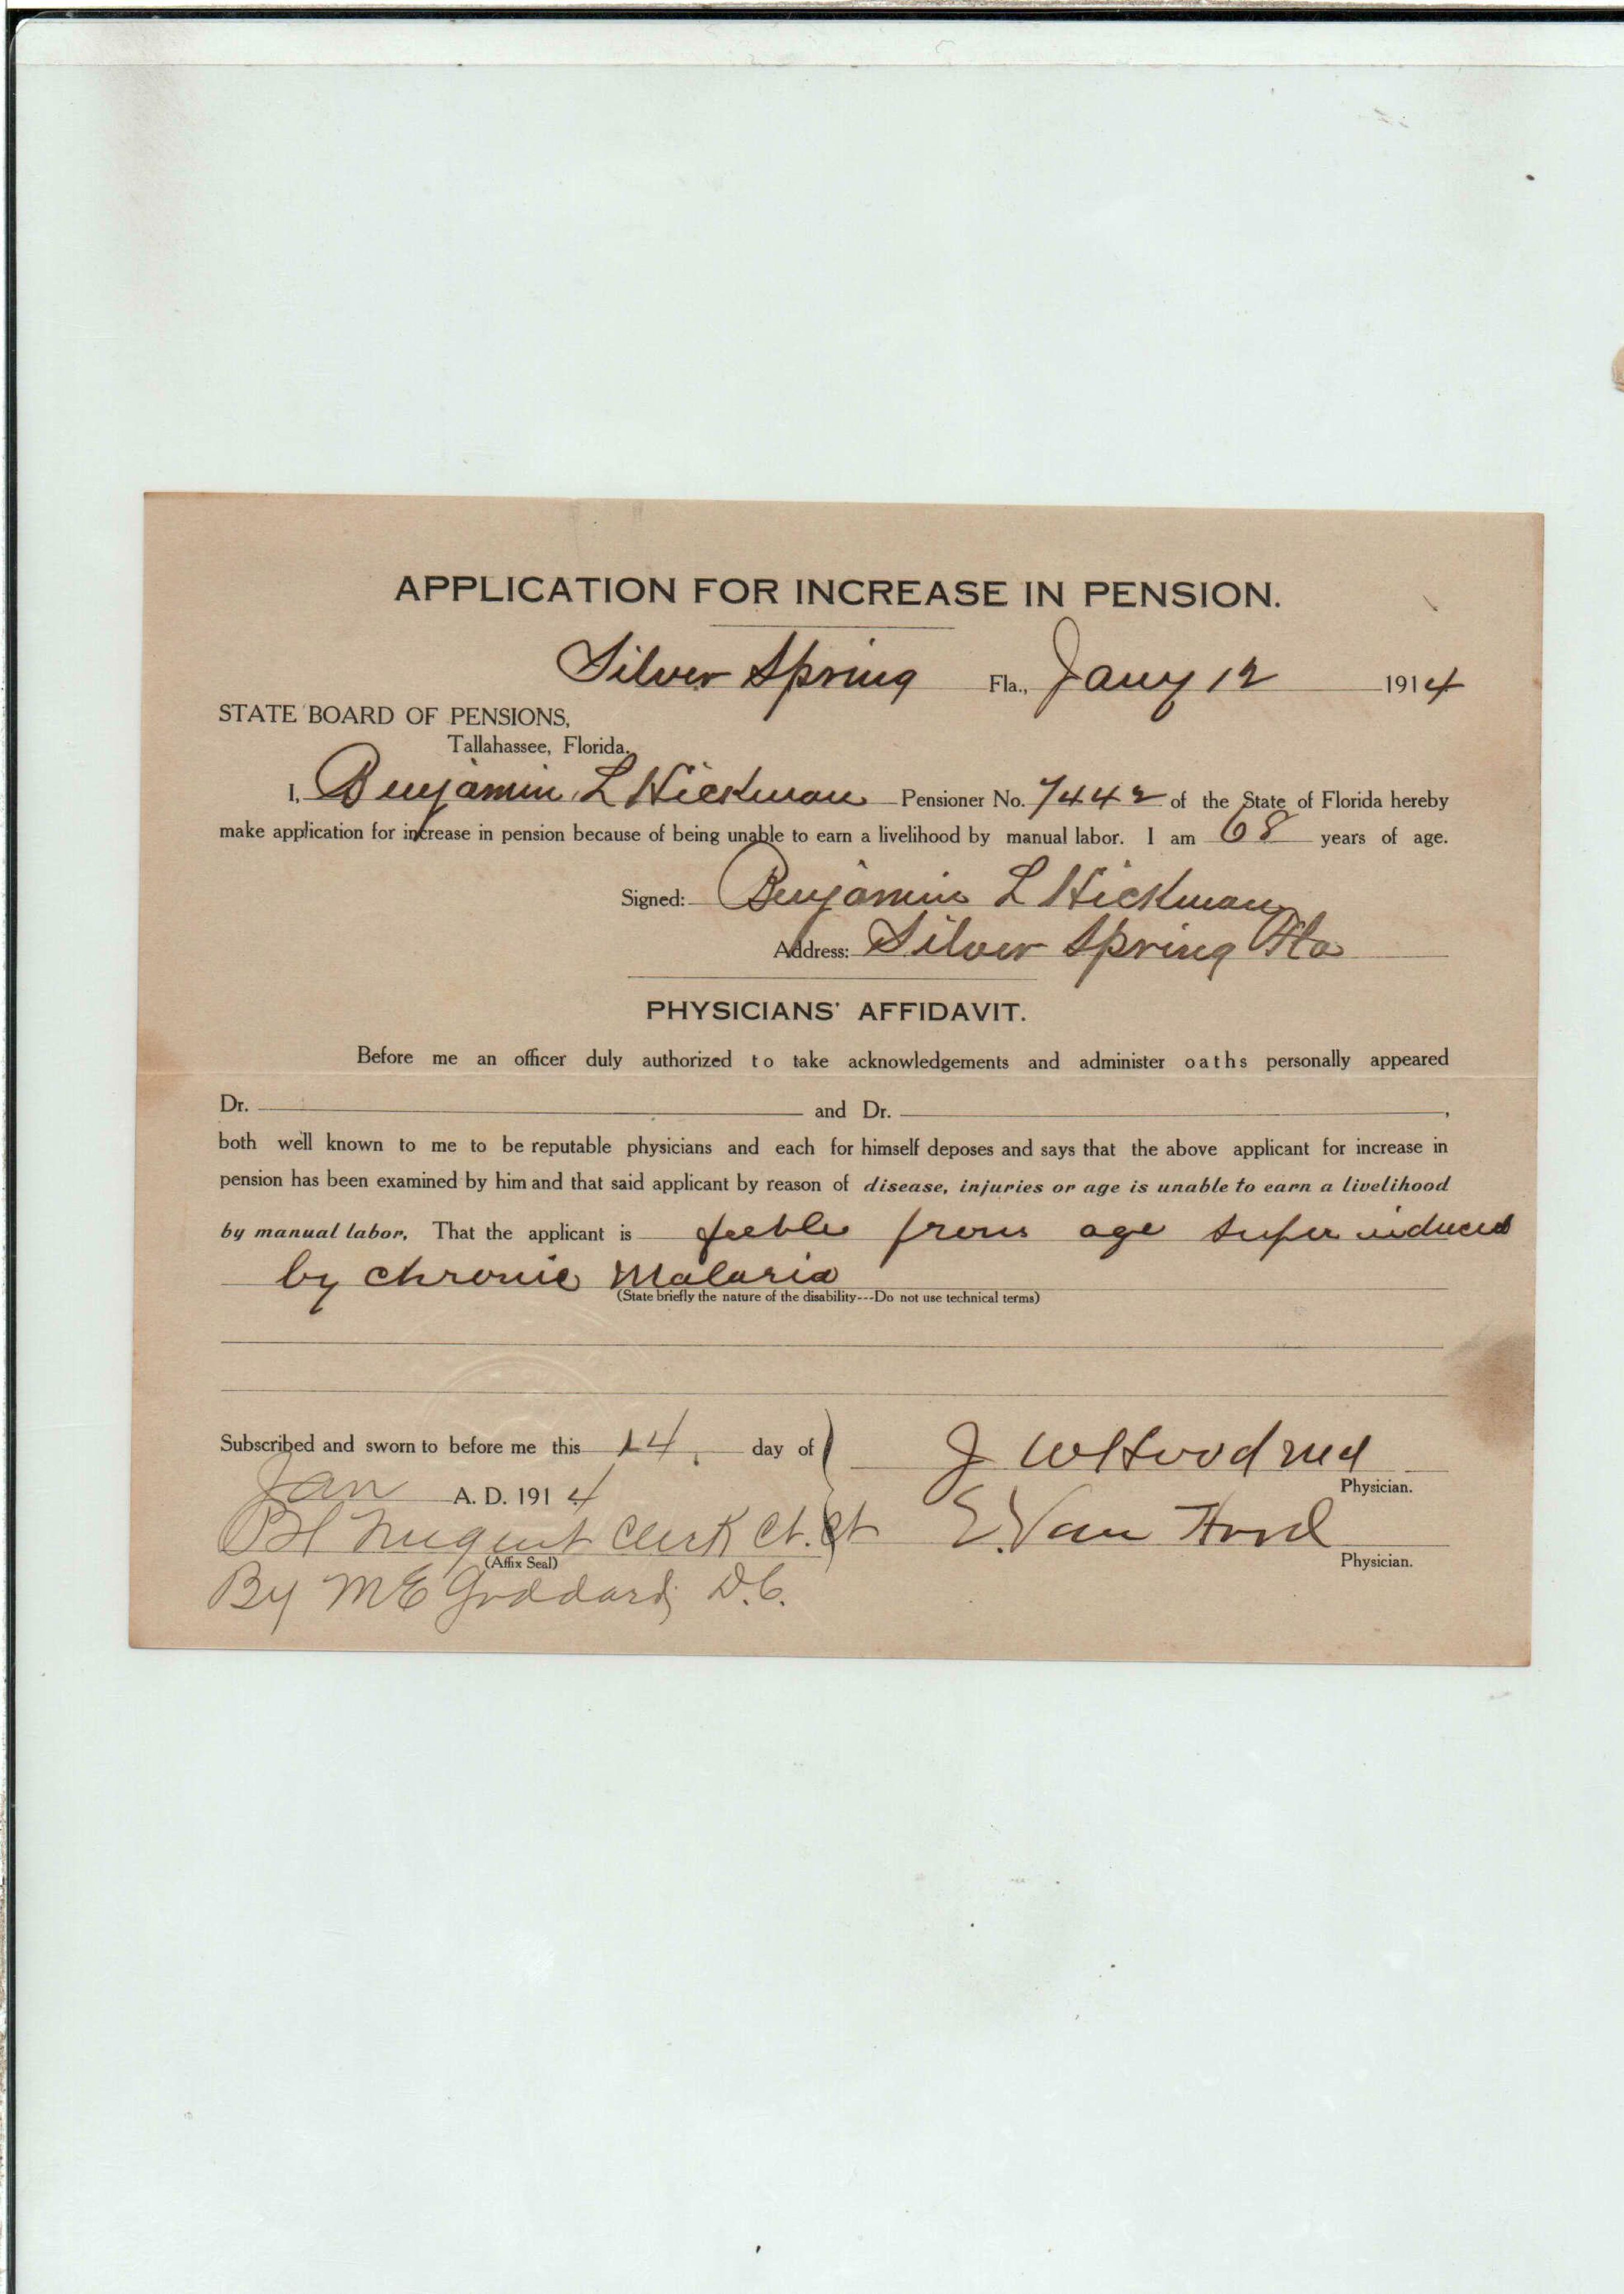 APPLICATION FOR INCREASE IN PENSION.
Silver Spring Fla., Jany 12 1914
STATE BOARD OF PENSIONS,
Tallahassee, Florida.
I, Benjamin L Hickman Pensioner No. 7442 of the State of Florida hereby
make application for increase in pension because of being unable to earn a livelihood by manual labor. I am 68 years of age.
Signed: Benjamin L Hickman
Address: Silver Spring Fla
PHYSICIANS' AFFIDAVIT.
Before me an officer duly authorized to take acknowledgements and administer oaths personally appeared
Dr. and Dr. ,
both well known to me to be reputable physicians and each for himself deposes and says that the above applicant for increase in
pension has been examined by him and that said applicant by reason of disease, injuries or age is unable to earn a livelihood
by manual labor, That the applicant is feeble from age super induced
by chronic Malaria
(State briefly the nature of the disability---Do not use technical terms)
Subscribed and sworn to before me this 14, day of J W Hood md
Physician.
Jan A. D. 1914
P H Nugent Clerk Ct. Ct E. Van Hood
(Affix Seal) Physician.
By M E Goddard, D.C.